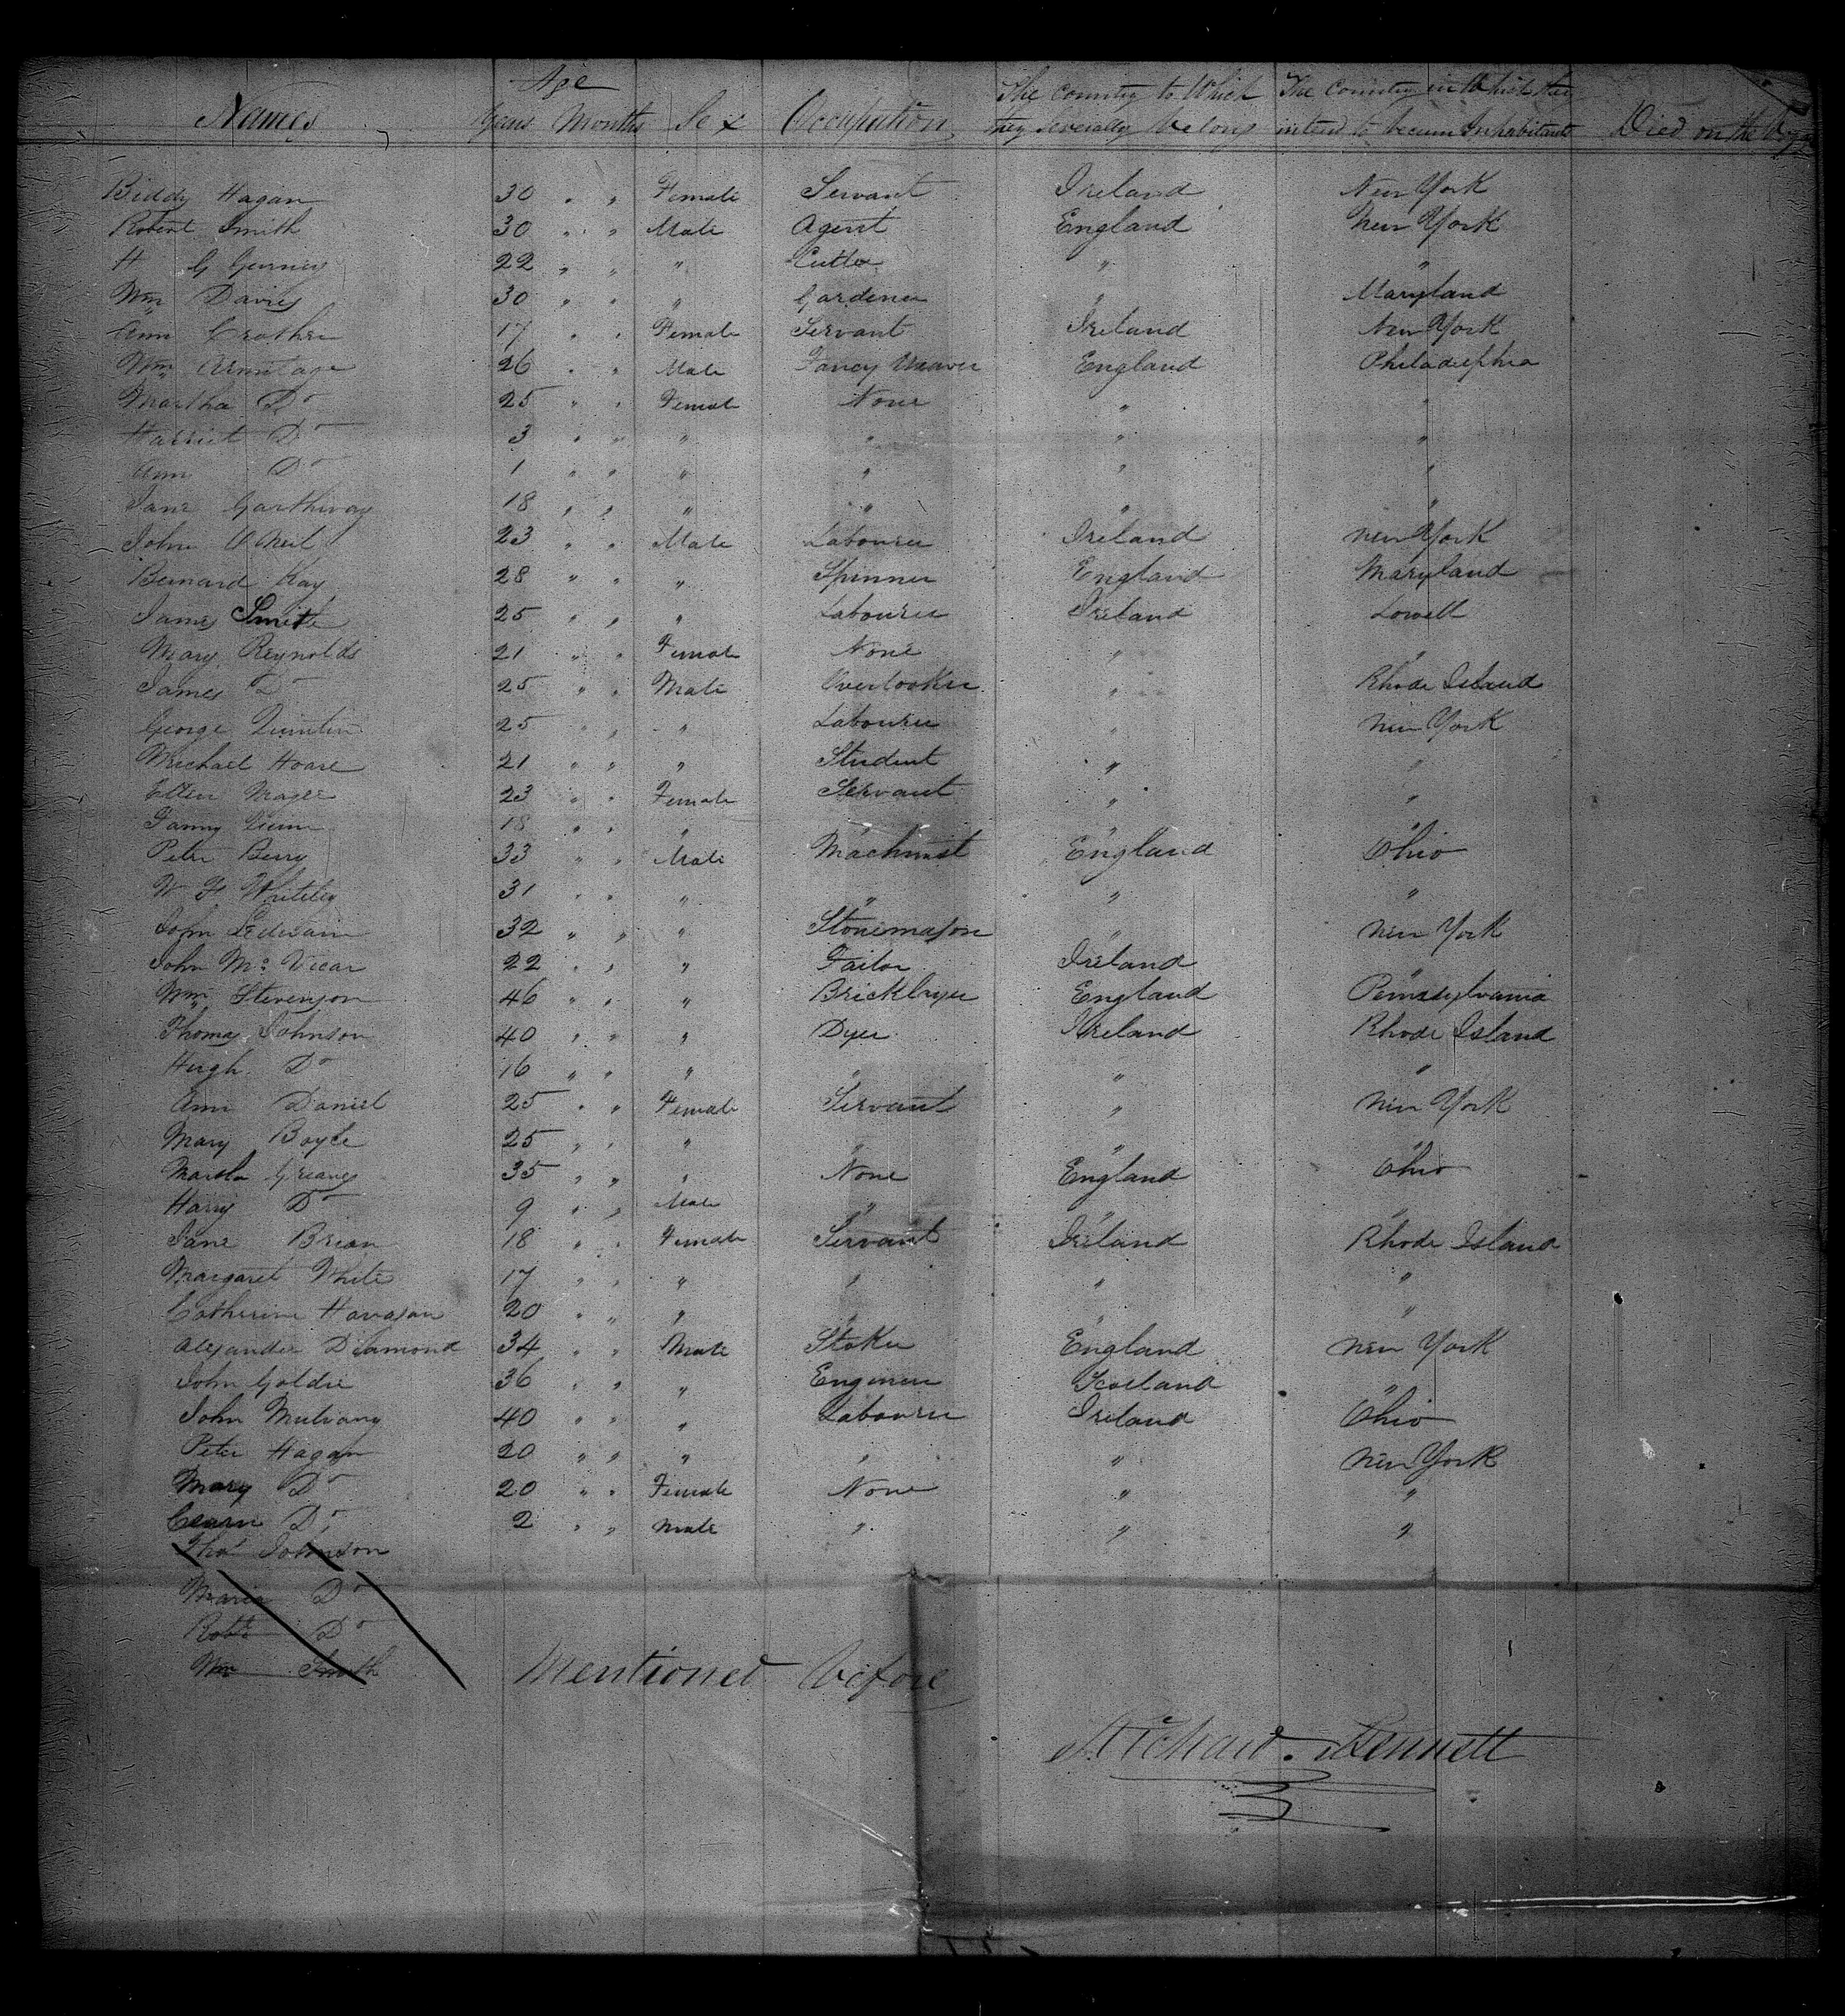 Age
Names Years Months Sex Occupation The Country to Which they severally belong The Country in Which they intend to becum Inhabitants Died on the
Biddy Hagan 30 " " Female Servant Ireland New York
Robert Smith 30 " " Male Agent England New York
H G Gurney 22 " " " Cutler " "
Wm Davies 30 " " " Gardener " Maryland
Ann Crother 17 " " Female Servant Ireland New York
Wm Armitage 26 " " Male Fancy Weaver England Philadelphia
Martha Do 25 " " Female None " "
Harriet Do 3 " " " " " "
Ann Do 1 " " " " " "
Jane Garthway 18 " " " " " "
John O Neil 23 " " Male Labourer Ireland New York
Bernard Kay 28 " " " Spinner England Maryland
James Smith 25 " " " Labourer Ireland Lowell
Mary Reynolds 21 " " Female None " "
James Do 25 " " Male Overlooker " Rhode Island
George Quinlin 25 " " " Labourer " New York
Michael Hoare 21 " " " Student " "
Ellen Magee 23 " " Female Servant " "
Fanny Quinn 18 " " " " " "
Peter Berry 33 " " Male Machinist England Ohio
W F Whiteley 31 " " " " " "
John 32 " " " Stonemason " New York
John Mc Vicar 22 " " " Tailor Ireland "
Wm Stevenson 46 " " " Bricklayer England Pennsylvania
Thomas Johnson 40 " " " Dyer Ireland Rhode Island
Hugh Do 16 " " " " " "
Ann Daniel 25 " " Female Servant " New York
Mary Boyle 25 " " " " " "
Martha Greaves 35 " " " None England Ohio
Harry Do 9 " " Male " " "
Jane Brian 18 " " Female Servant Ireland Rhode Island
Margaret White 17 " " " " " "
Catherine 20 " " " " " "
Alexander Diamond 34 " " Male Stoker England New York
John Goldie 36 " " " Engineer Scotland "
John Mulvany 40 " " " Labourer Ireland Ohio
Peter Hagan 20 " " " " " New York
Mary Do 20 " " Female None " "
Do 2 " " Male " " "
Thos Johnson
Maria Do
Robt Do
Wm Smith Mentioned before
Richard Bennett